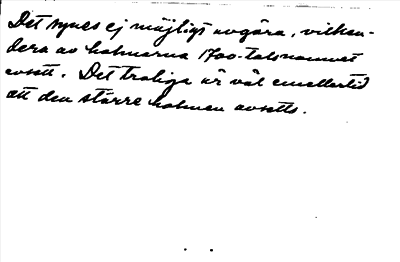 Det synes ej möjligt avgöra, vilken-
dera av holmarna 1700-talsnamnet
avsett. Det troliga är väl emellertid
att den större holmen avsetts.